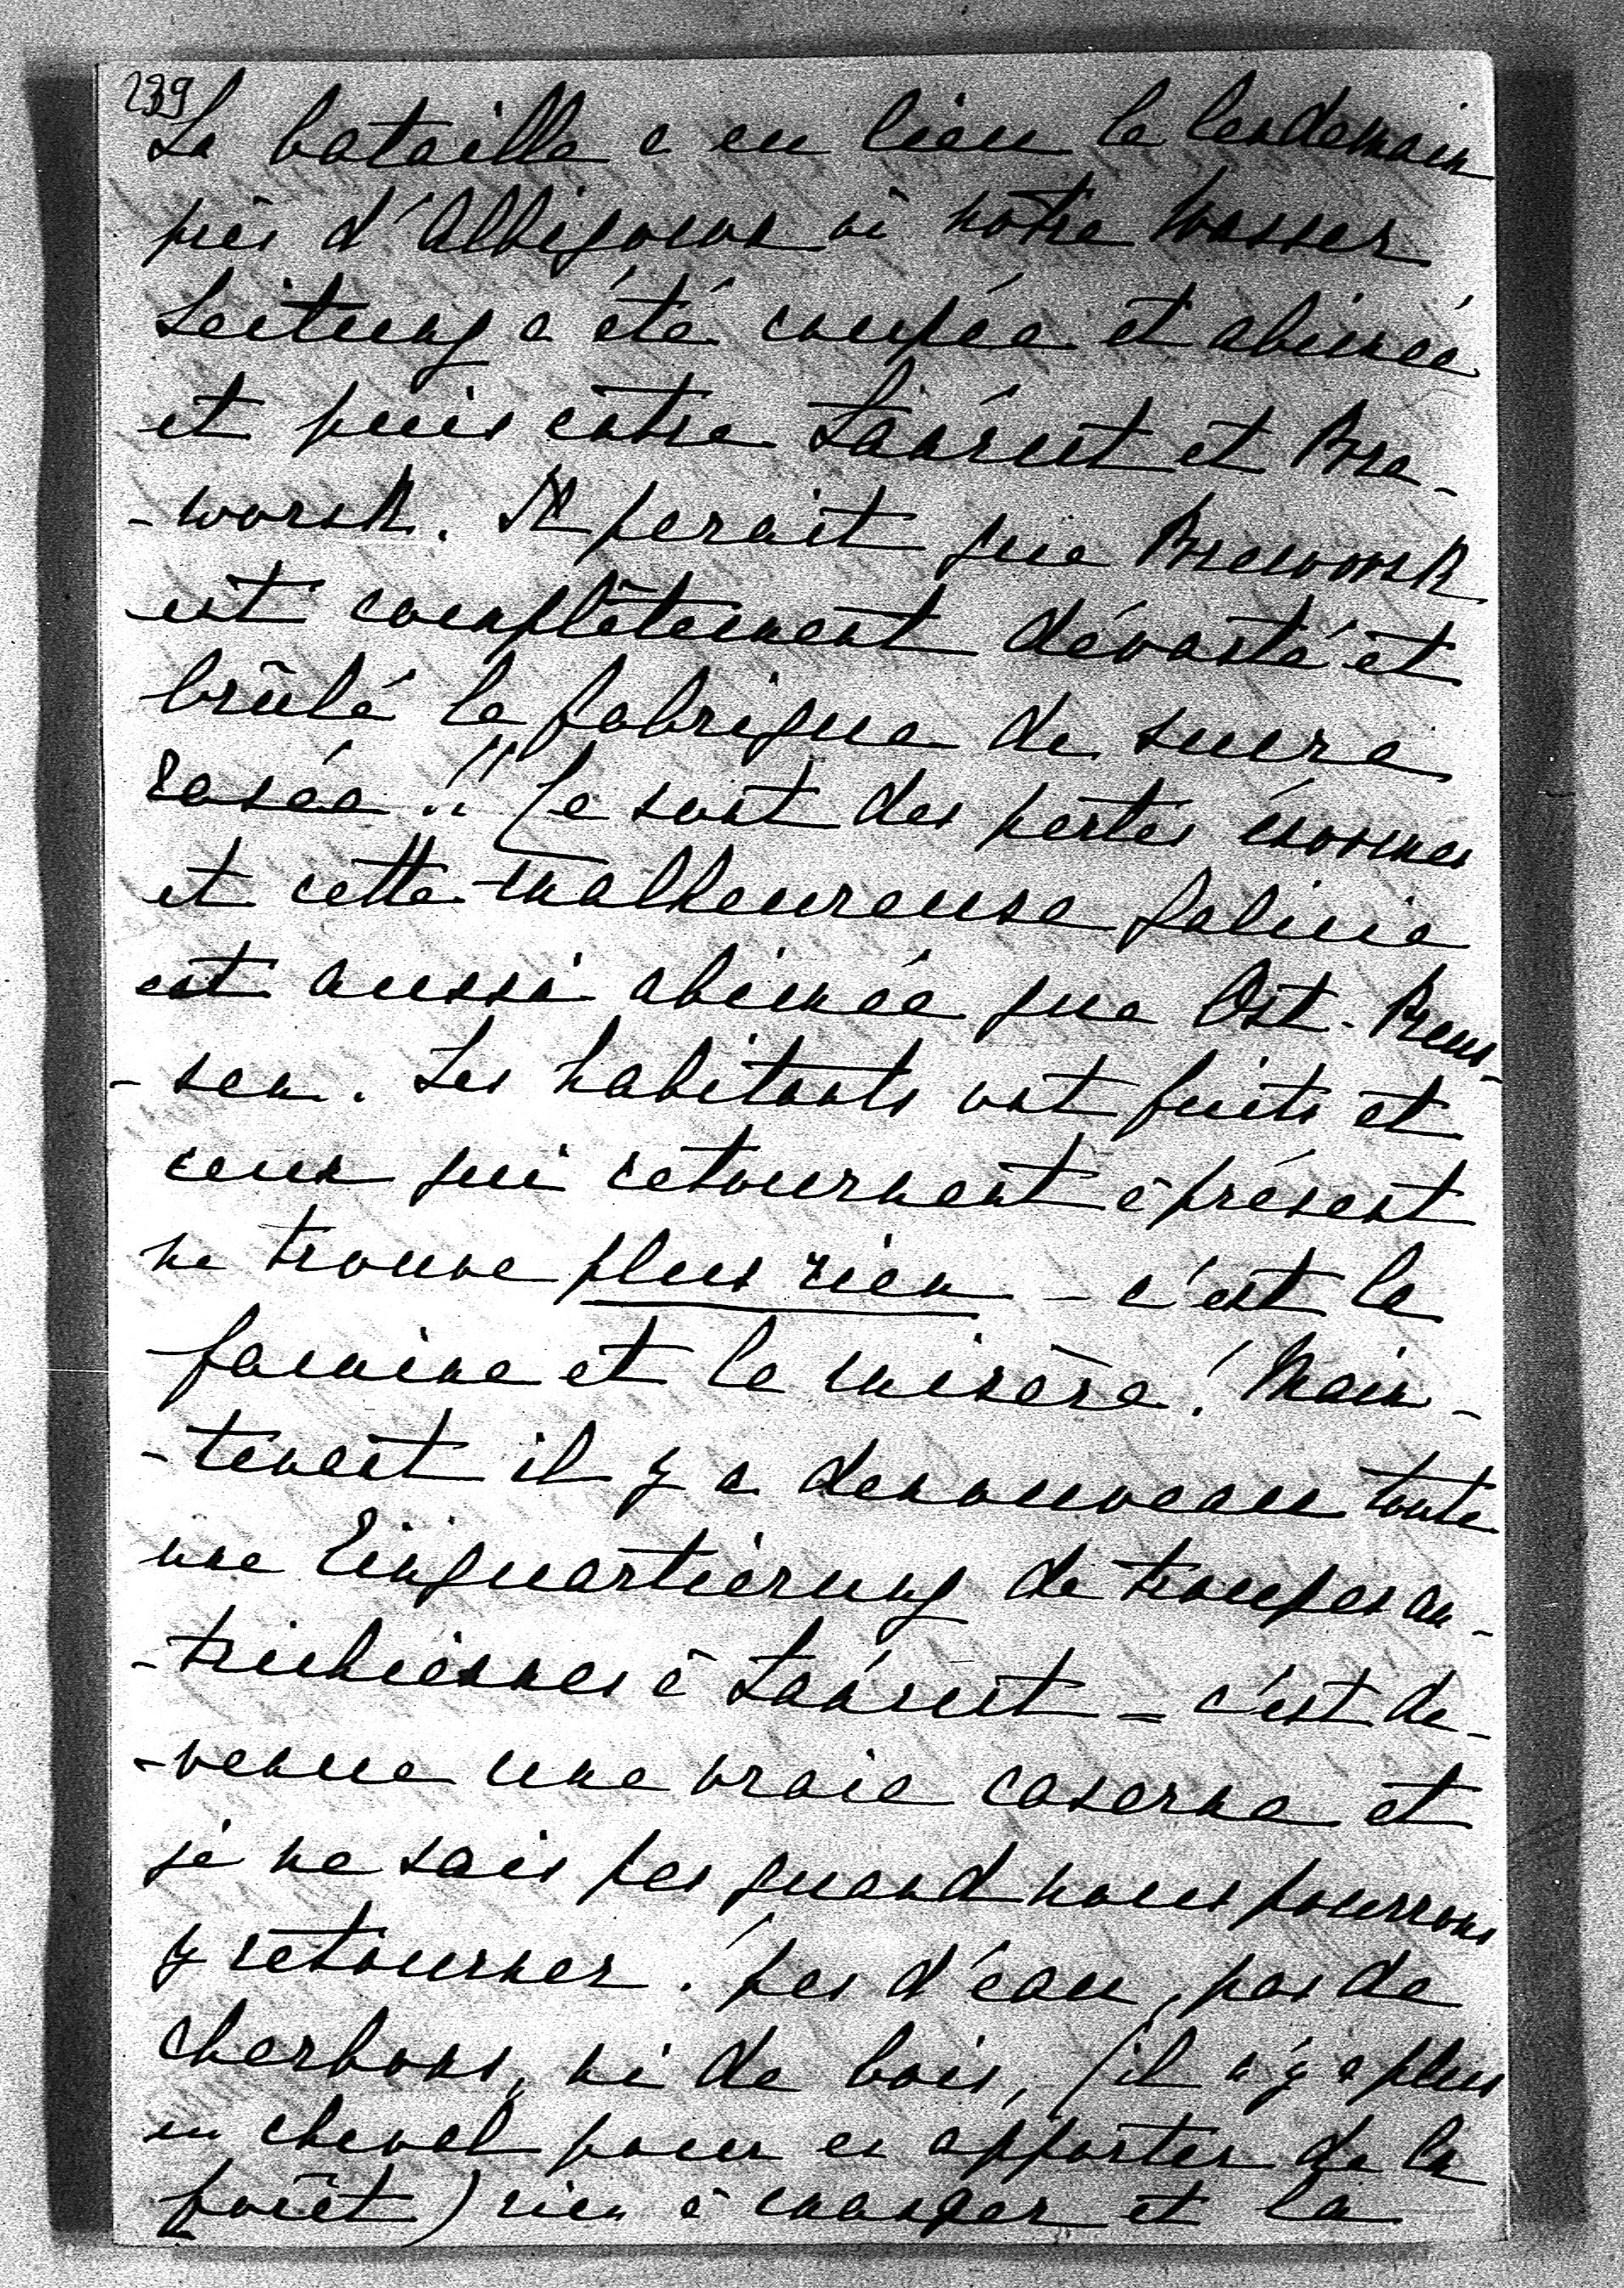 239
La bataille a eu lieu le lendemain
près d'Albigowa où notre Wasser
Leitung a été coupée et abimée
et puis entre Łańcut et Prze-
-worsk. Il parait que Przeworsk
est complètement dévasté et
brûlé la fabrique de sucre
rasée!! Ce sont des pertes énormes
et cette malheureuse Galicie
est aussi abimée que Ost-Preus-
-sen. Les habitants ont fuits et
ceux qui retournent à présent
ne trouve plus rien - c'est la
famine et la misère! Main-
-tenant il y a denouveau toute
une Einquartierung de troupes au-
-trichiennes à Łańcut = c'est de-
-venue une vraie caserne et
je ne sais pas quand nous pourrons
y retourner. Pas d'eau, pas de
charbons, ni de bois, (il n'y a plus
un cheval pour en apporter de la
forêt) rien à manger et la